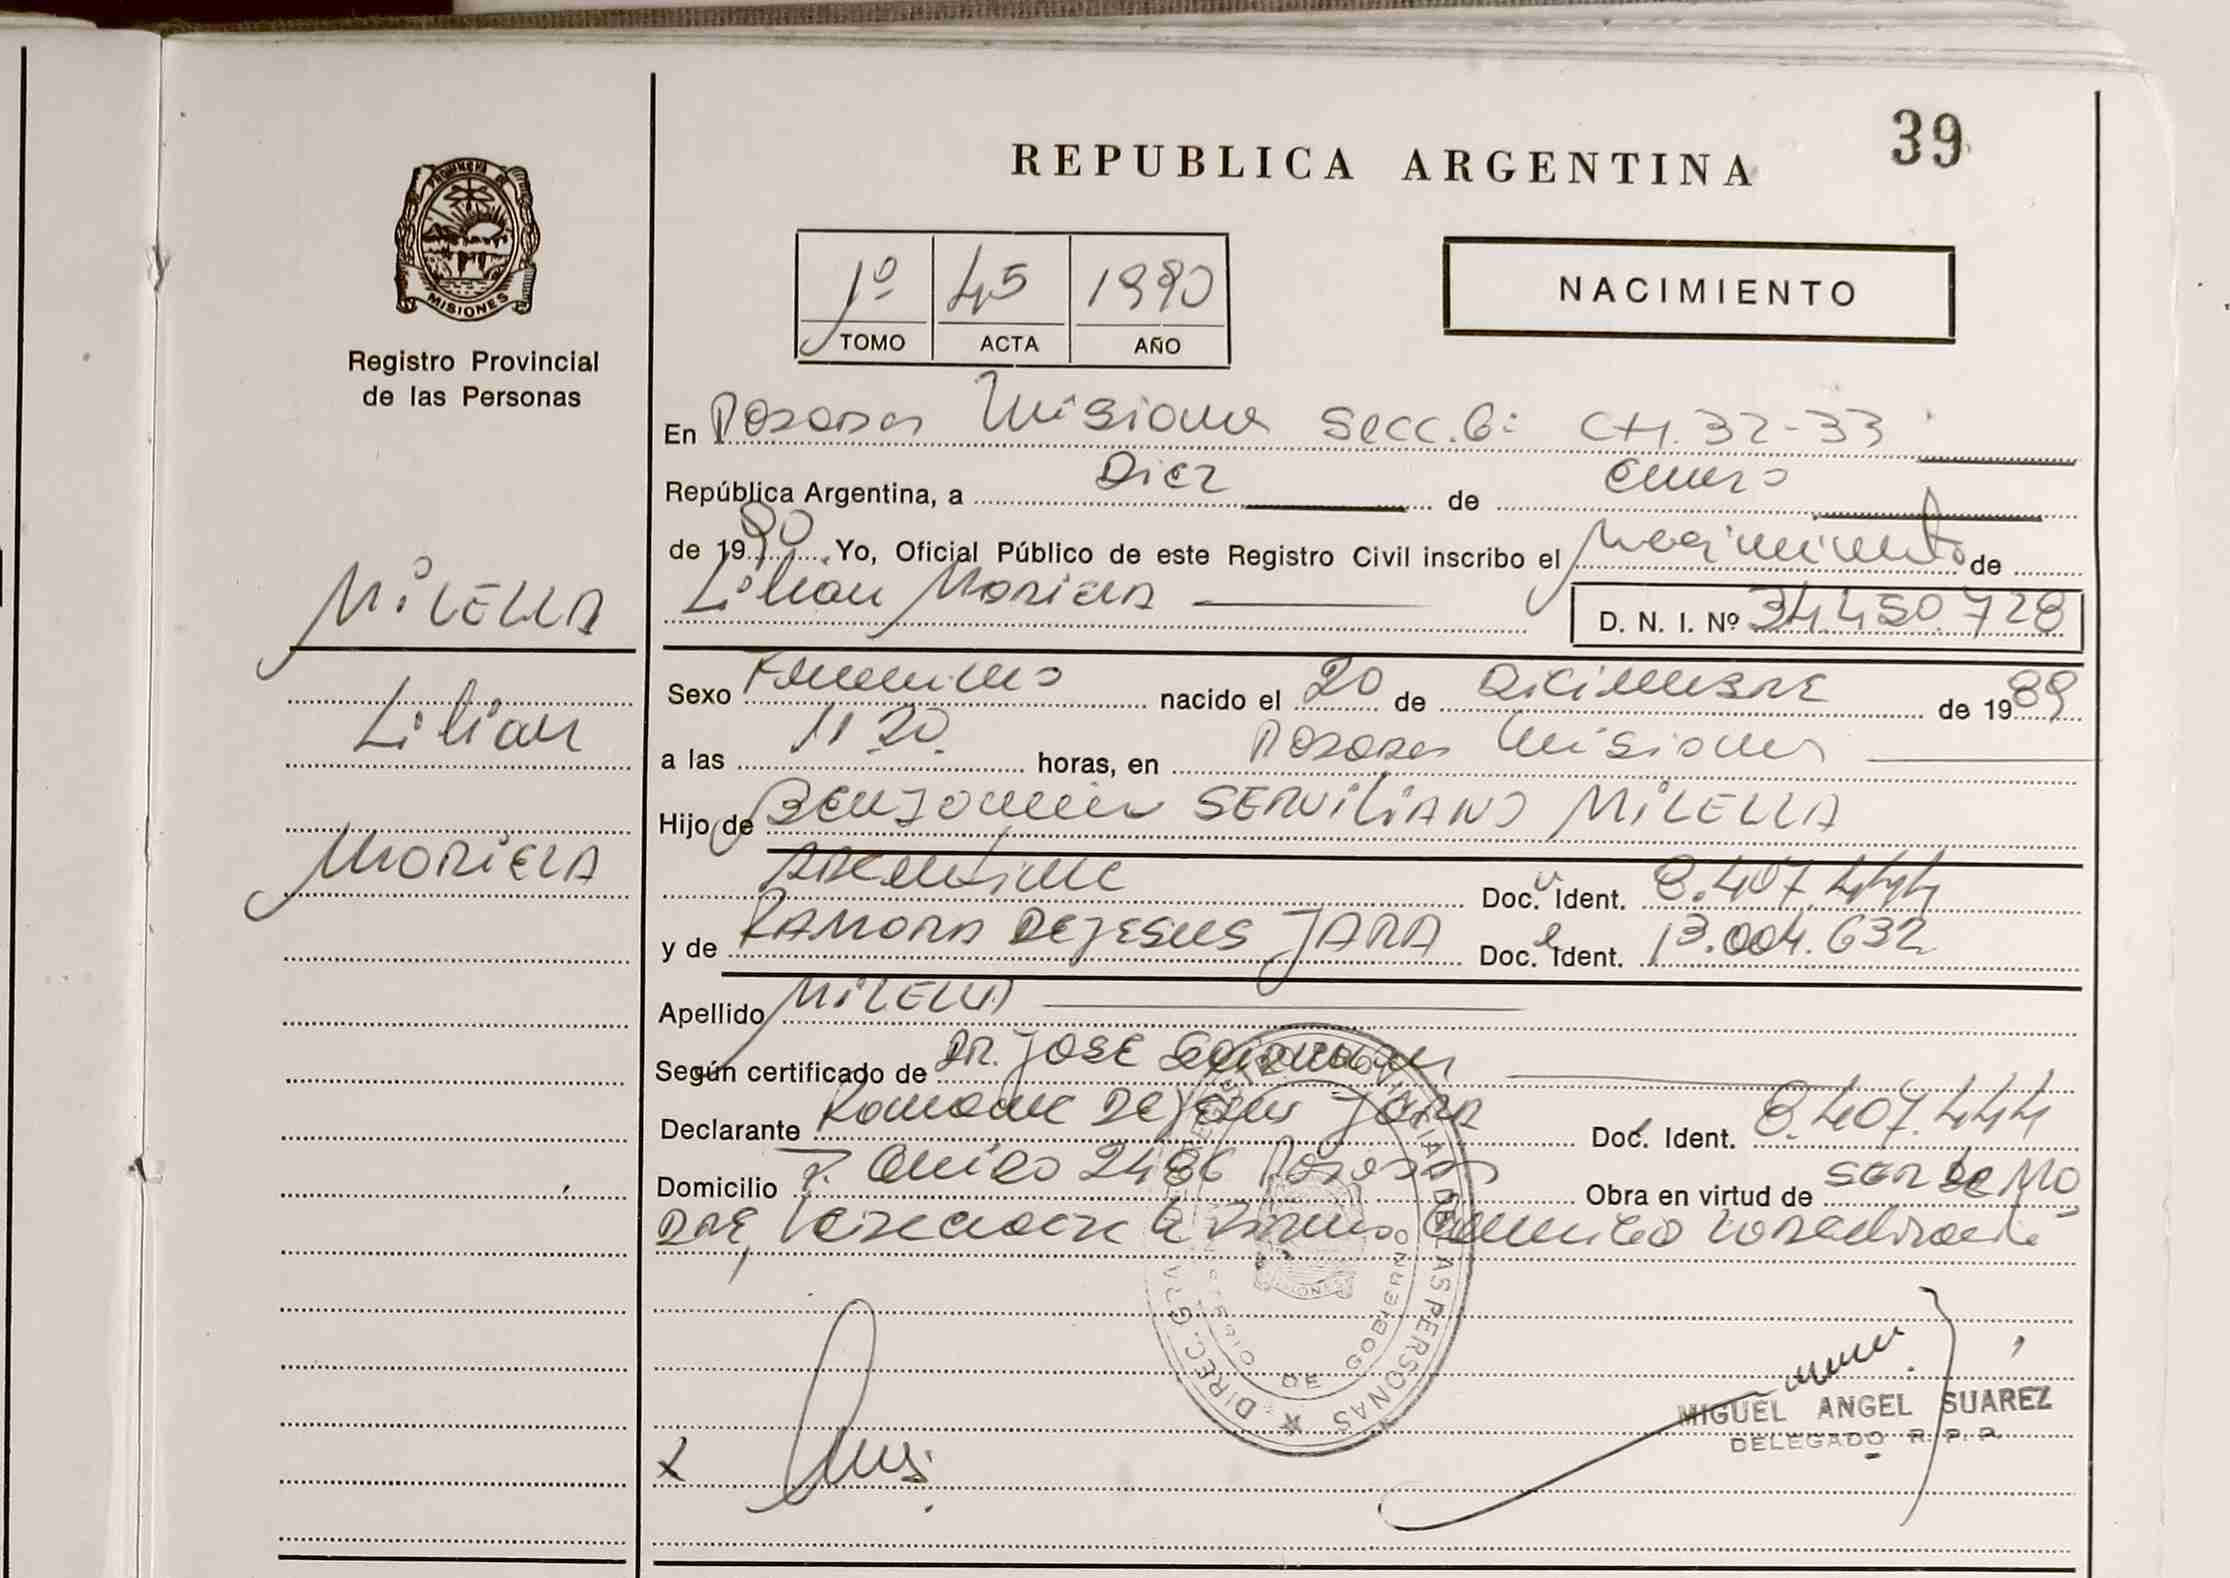 39
REPUBLICA ARGENTINA
PROVINCIA DE
MISIONES
Registro Provincial
de las Personas
1º 45 1990
TOMO ACTA AÑO
NACIMIENTO
En Posadas Misiones Secc. 6: CH. 32-33
República Argentina, a Diez de Enero
de 1990 Yo, Oficial Público de este Registro Civil inscribo el nacimiento de
Lilian Mariela D. N. I. Nº 34.450.728
MILELLA
Lilian
MARIELA
Sexo Femenino nacido el 20 de Diciembre de 1989
a las 11 20 horas, en Posadas Misiones
Hijo de Benjamin SERVILIANO MILELLA
Argentino Doc. Ident. 8.407.444
y de RAMONA DE JESUS JARA Doc. Ident. 13.004.632
Apellido MILELLA
Según certificado de DR. JOSE
Declarante Ramona De Jesus JARA Doc. Ident. 8.407.444
Domicilio 2486 Posadas Obra en virtud de SER LA MA
DRE,
DIREC. GRAL. REGISTRO PROVINCIAL DE LAS PERSONAS
MINISTERIO DE GOBIERNO
MIGUEL ANGEL SUAREZ
DELEGADO R. P. P.
X